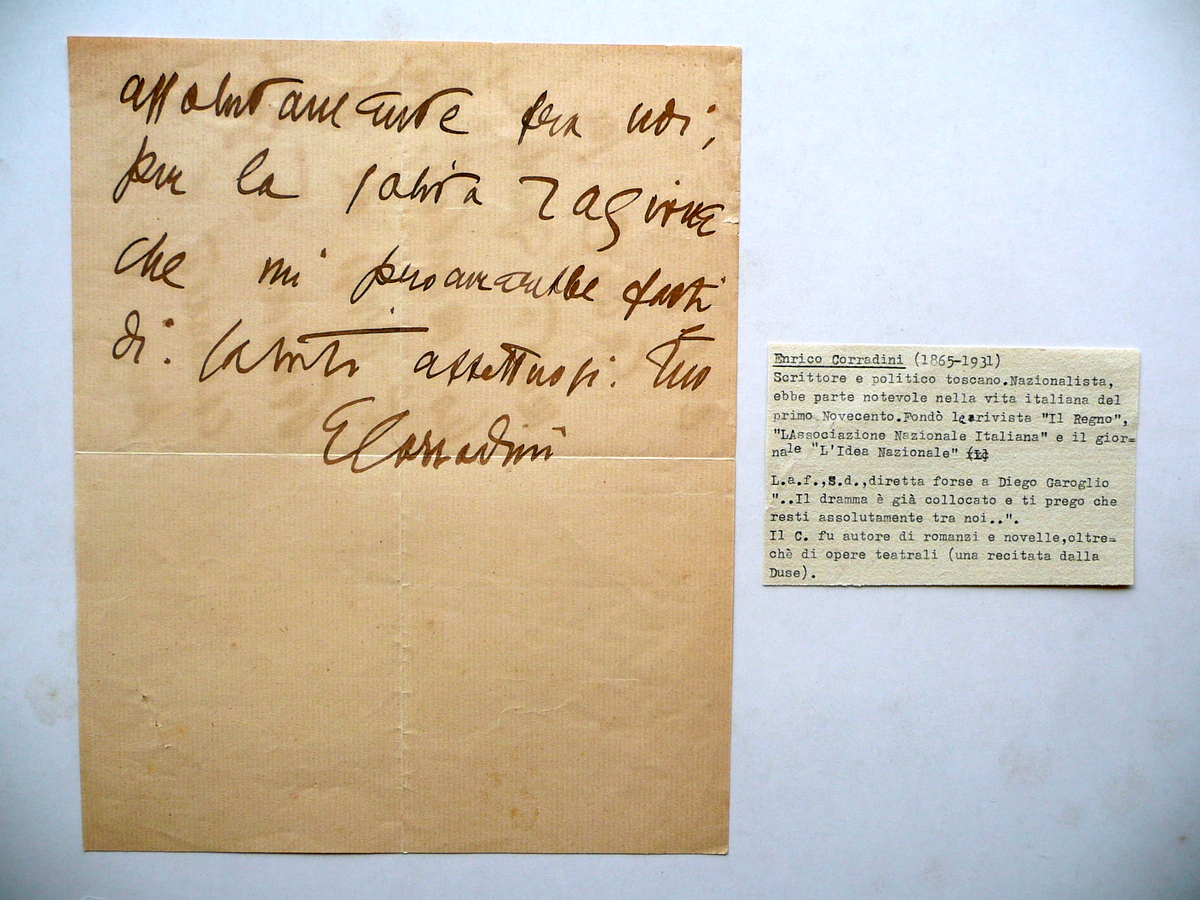 assolutamente fra noi,
per la solita ragione
che mi procurerebbe fasti
di. Saluti affettuosi. Tuo
ECorradini
Enrico Corradini (1865-1931)
Scrittore e politico toscano.Nazionalista,
ebbe parte notevole nella vita italiana del
primo Novecento.Fondò la rivista "Il Regno",
"LAssociazione Nazionale Italiana" e il gior=
nale "L'Idea Nazionale"
L.a.f.,S.d.,diretta forse a Diego Garoglio
"..Il dramma è già collocato e ti prego che
resti assolutamente tra noi..".
Il C. fu autore di romanzi e novelle,oltre=
chè di opere teatrali (una recitata dalla
Duse).